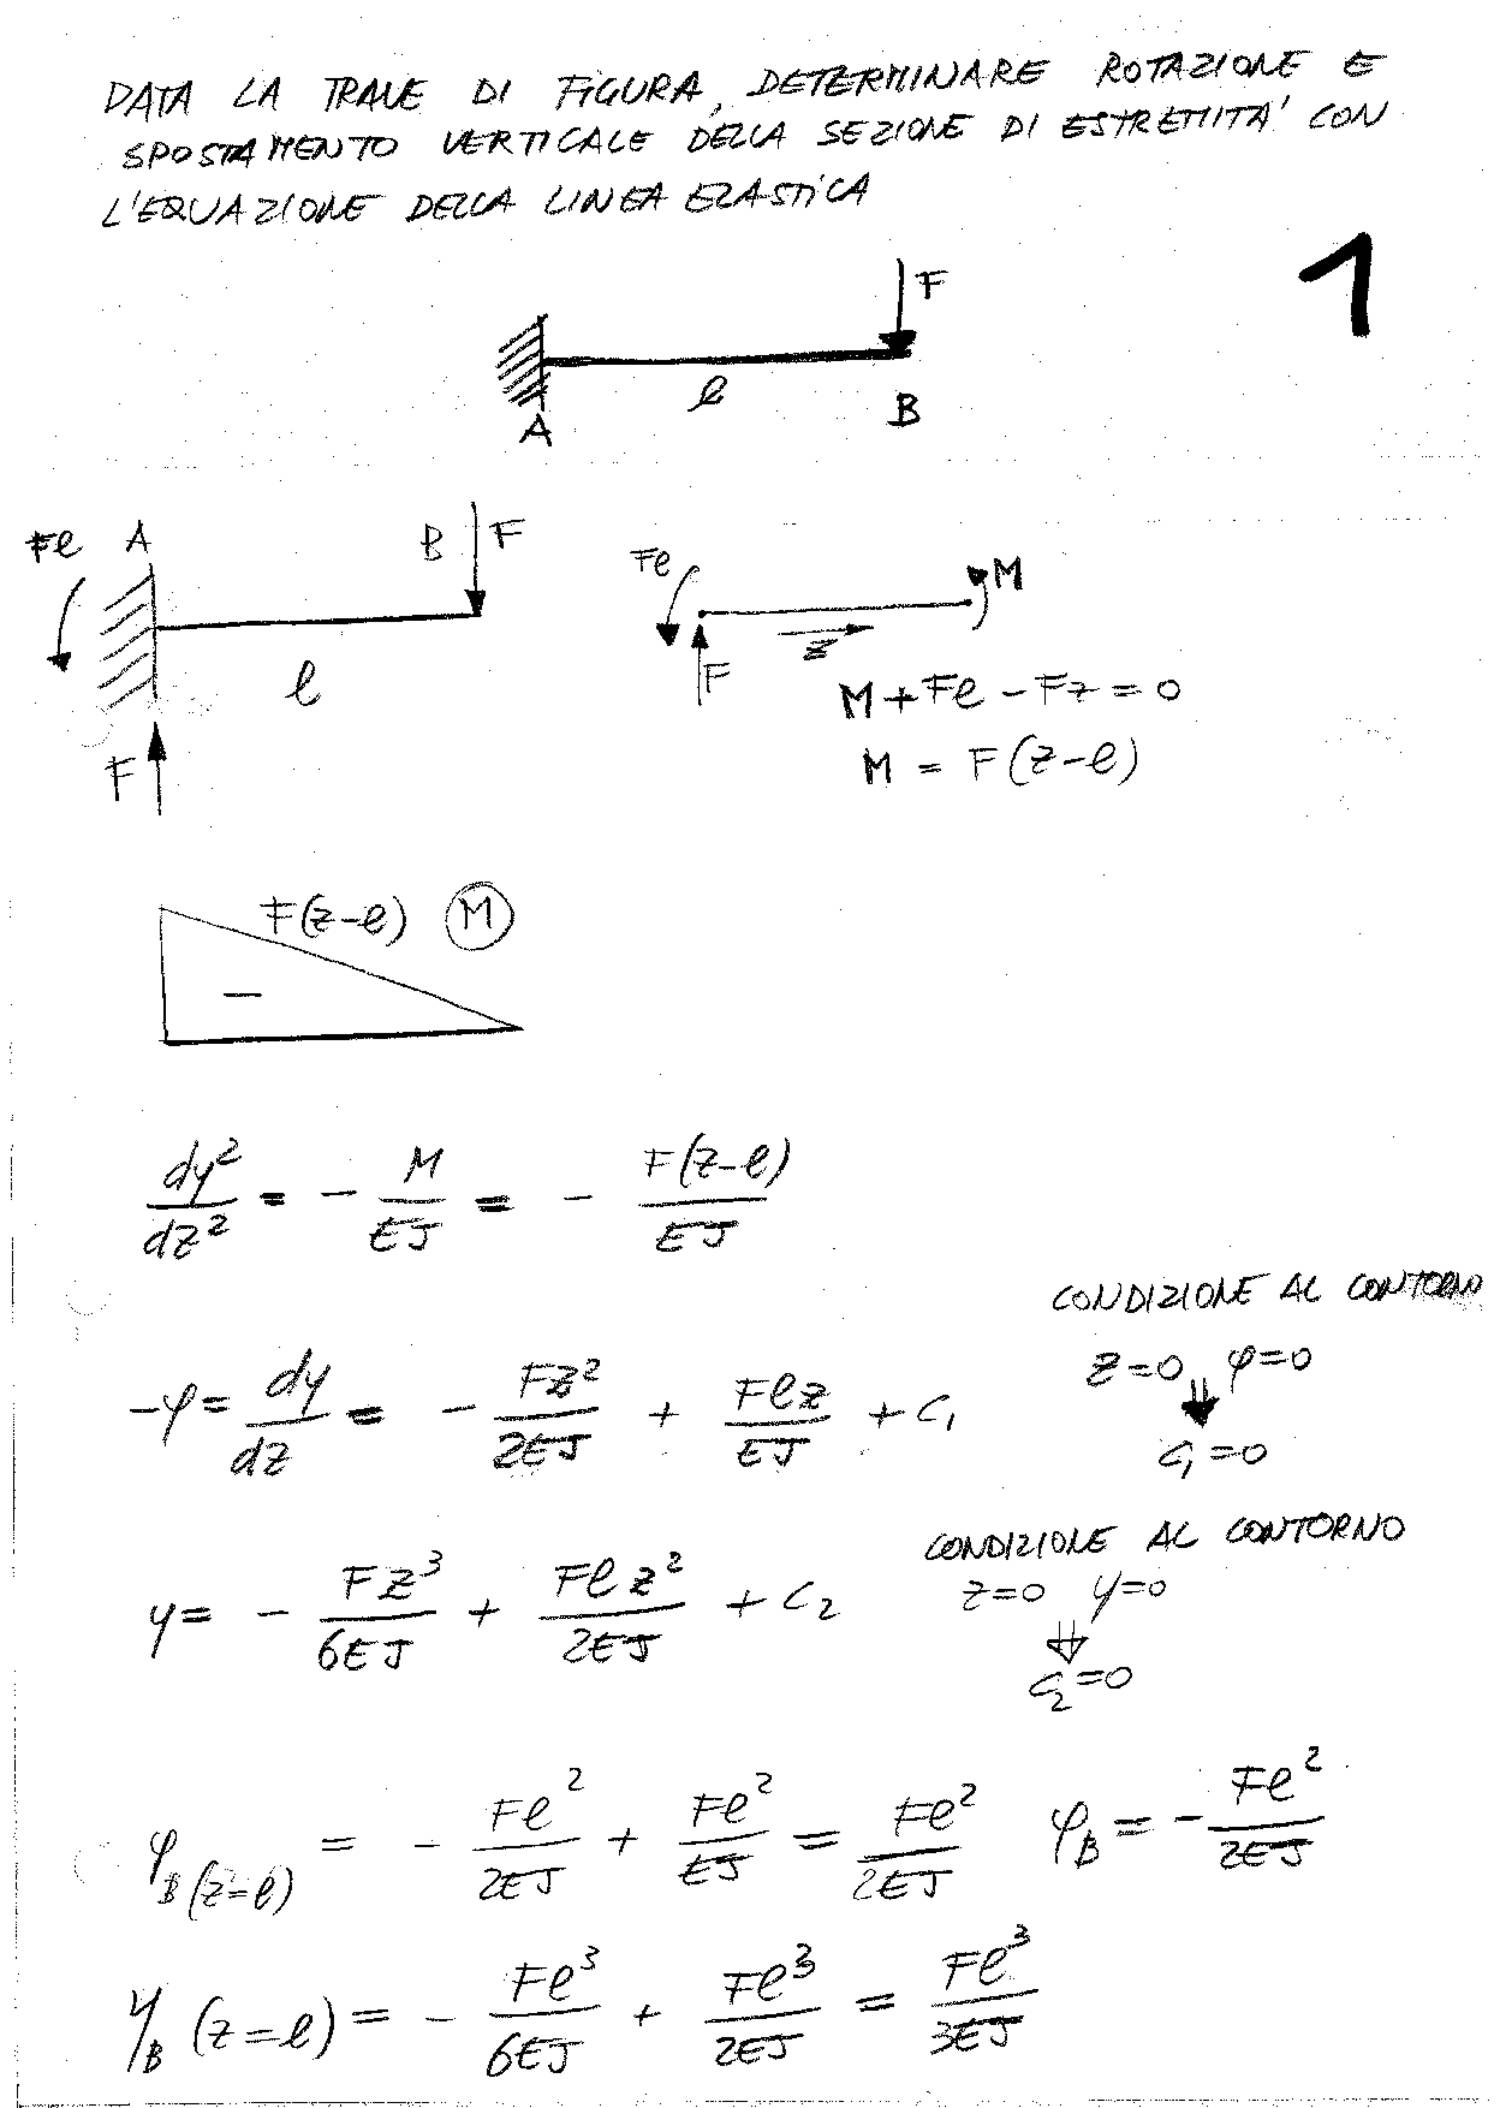 DATA LA TRAVE DI FIGURA, DETERMINARE ROTAZIONE E
SPOSTAMENTO VERTICALE DELLA SEZIONE DI ESTREMITA' CON
L'EQUAZIONE DELLA LINEA ELASTICA
1
F
l
A
B
Fl A B F
l
F
Fl M
z
F
M + Fl - Fz = 0
M = F(z-l)
F(z-l) M
-
dy²/dz² = - M/EJ = - F(z-l)/EJ
CONDIZIONE AL CONTORNO
z=0 φ=0
⇓
C₁=0
-φ = dy/dz = - Fz²/2EJ + Flz/EJ + C₁
CONDIZIONE AL CONTORNO
z=0 y=0
⇓
C₂=0
y = - Fz³/6EJ + Flz²/2EJ + C₂
φB(z=l) = - Fl²/2EJ + Fl²/EJ = Fl²/2EJ φB = - Fl²/2EJ
yB (z=l) = - Fl³/6EJ + Fl³/2EJ = Fl³/3EJ